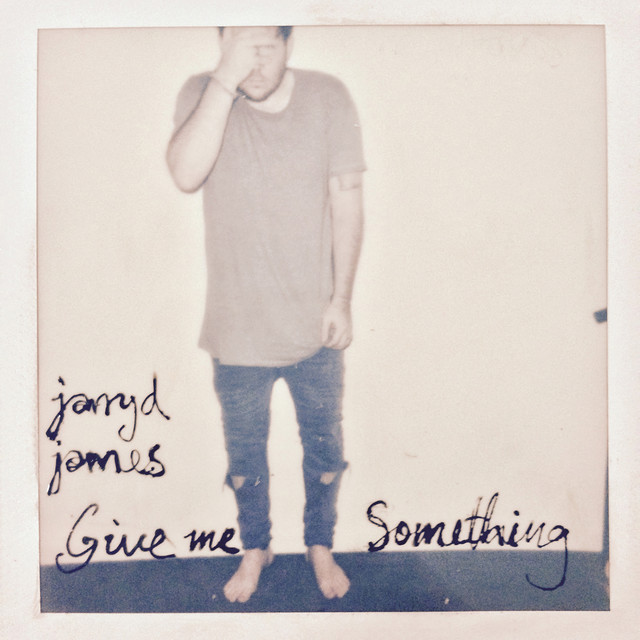 jarryd
james
Give me Something